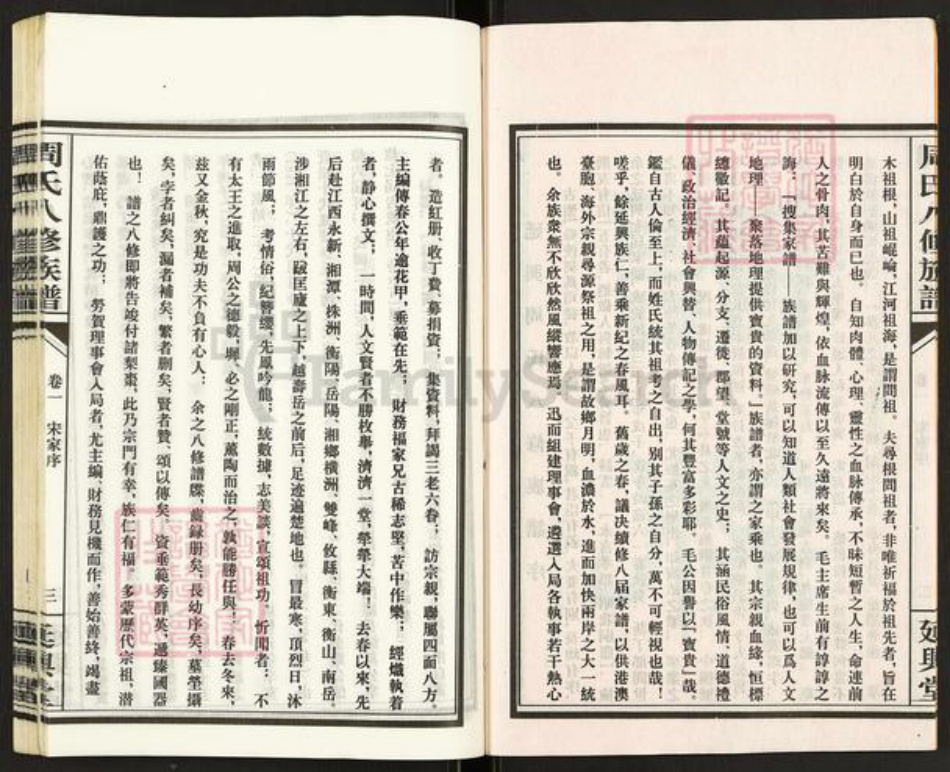 木祖根,山祖崐崘,江河祖海,是謂問祖。夫尋根問祖者,非唯祈福於祖先者,旨在
明白於自身而已也。自知肉體、心理、靈性之血脉傳承,不昧短暫之人生,命連前
人之骨肉,其苦難與輝煌,依血脉流傳以至久遠將來矣。毛主席生前有諄諄之
誨:「搜集家譜——族譜加以研究,可以知道人類社會發展規律,也可以爲人文
地理——聚落地理提供寶貴的資料。」族譜者,亦謂之家乘也。其宗親血緣,恒標
總徽記。其蘊起源、分支、遷徙、郡望、堂號等人文之史;其涵民俗風情、道德禮
儀、政治經濟、社會興替、人物傳記之學,何其豐富多彩耶。毛公因譽以「寶貴」哉。
鑑自古人倫至上,而姓氏統其祖考之自出,别其子孫之自分,萬不可輕視也哉!
嗟乎,餘延興族仁,善乘新紀之春風耳。舊歲之春,議决續修八届家譜,以供港澳
臺胞、海外宗親尋源祭祖之用,是謂故鄉月明,血濃於水,進而加快兩岸之大一統
也。余族衆無不欣欣然風縱響應焉,迅而組建理事會,遴選入局各執事若干熱心
周氏八修族譜
延興堂
者。造紅册、收丁費、募捐資;集資料,拜謁三老六眷;訪宗親,聯屬四面八方。
主編傳春公年逾花甲,垂範在先;財務福家兄古稀志堅,苦中作樂;經熾執着
者,静心撰文;一時間,人文賢者不勝枚舉,濟濟一堂,犖犖大端!去春以來,先
后赴江西永新、湘潭、株洲、衡陽、岳陽、湘鄉横洲、雙峰、攸縣、衡東、衡山、南岳。
涉湘江之左右,跋匡廬之上下,越壽岳之前后,足迹遍楚地也。冒最寒,頂烈日,沐
雨節風;考情俗,紀簪纓,先鳳吟龍;統數據,志美談,宣頌祖功。忻聞者;不
有太王之進取,周公之德毅,墀、必之剛正,薰陶而治之,孰能勝任與;春去冬來,
兹又金秋,究是功夫不負有心人;余之八修譜牒,歲録册矣,長幼序矣,墓塋攝
矣,字者糾矣,漏者補矣,繁者删矣,賢者贊、頌以傳矣,資垂範秀群英,遞臻國器
也!譜之八修即將告竣付諸梨棗,此乃宗門有幸,族仁有福。多蒙歷代宗祖,潜
佑蔭庇,鼎護之功;勞賀理事會入局者,尤主編、財務見機而作,善始善終,竭盡
周氏八修族譜
卷一 宋家序
三
延興堂
FamilySearch